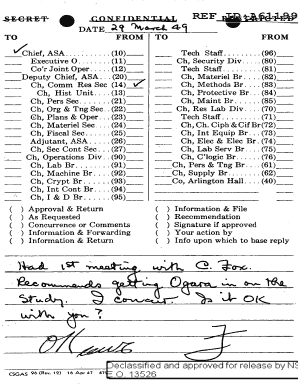 SECRET CONFIDENTIAL REF
DATE 29 March 49
TO FROM TO FROM
Chief, ASA (10) Tech Staff (96)
Executive O (11) Ch, Security Div (80)
Co'r Joint Oper (12) Tech Staff (81)
Deputy Chief, ASA (20) Ch, Materiel Br (82)
Ch, Comm Res Sec (14) Ch, Methods Br (83)
Ch, Hist Unit (13) Ch, Protective Br (84)
Ch, Pers Sec (21) Ch, Maint Br (85)
Ch, Org & Tng Sec (22) Ch, Res Lab Div (70)
Ch, Plans & Oper (23) Tech Staff (71)
Ch, Materiel Sec (24) Ch, Ch, Ciph & Cif Br (72)
Ch, Fiscal Sec (25) Ch, Int Equip Br (73)
Adjutant, ASA (26) Ch, Elec & Elec Br (74)
Ch, Sec Cont Sec (27) Ch, Lab Serv Br (75)
Ch, Operations Div (90) Ch, C'logic Br (76)
Ch, Lab Br (91) Ch, Pers & Tng Br (61)
Ch, Machine Br (92) Ch, Supply Br (62)
Ch, Crypt Br (93) Co, Arlington Hall (40)
Ch, Int Cont Br (94)
Ch, I & D Br (95)
( ) Approval & Return ( ) Information & File
( ) As Requested ( ) Recommendation
( ) Concurrence or Comments ( ) Signature if approved
( ) Information & Forwarding ( ) Your action by
( ) Information & Return ( ) Info upon which to base reply
Had 1st meeting with C. Fox.
Recommends getting Ogara in on the
Study. I concur. Is it OK
with you?
OK F
CSGAS 96 (Rev. 12) 16 Apr 47
Declassified and approved for release by NS
E.O. 13526